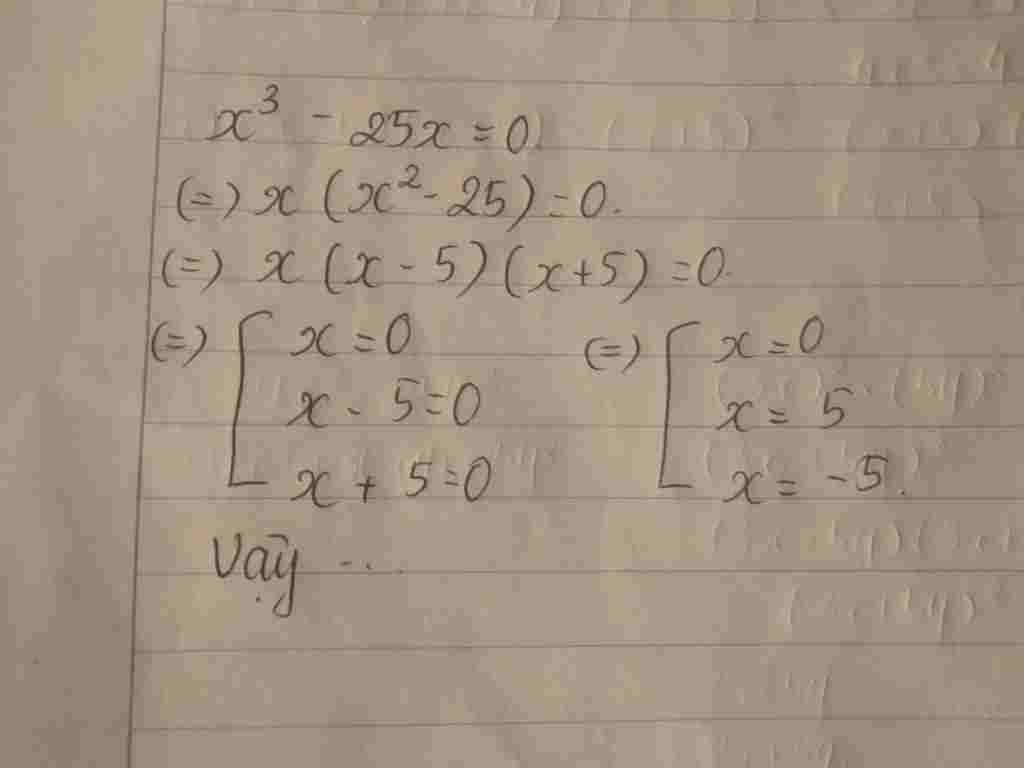 x³ - 25x = 0
(=) x (x² - 25) = 0.
(=) x (x - 5) (x + 5) = 0.
(=) [ x = 0 (=) [ x = 0
x - 5 = 0 x = 5
x + 5 = 0 x = -5.
Vậy ....